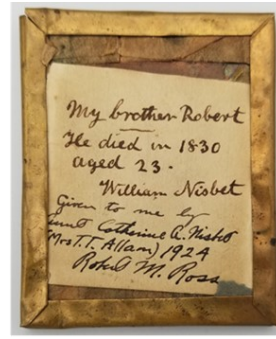 My brother Robert
He died in 1830
aged 23.
William Nisbet
Given to me by
aunt Catherine A. Nisbet
(Mrs T. T. Allan) 1924
Robert M. Ross